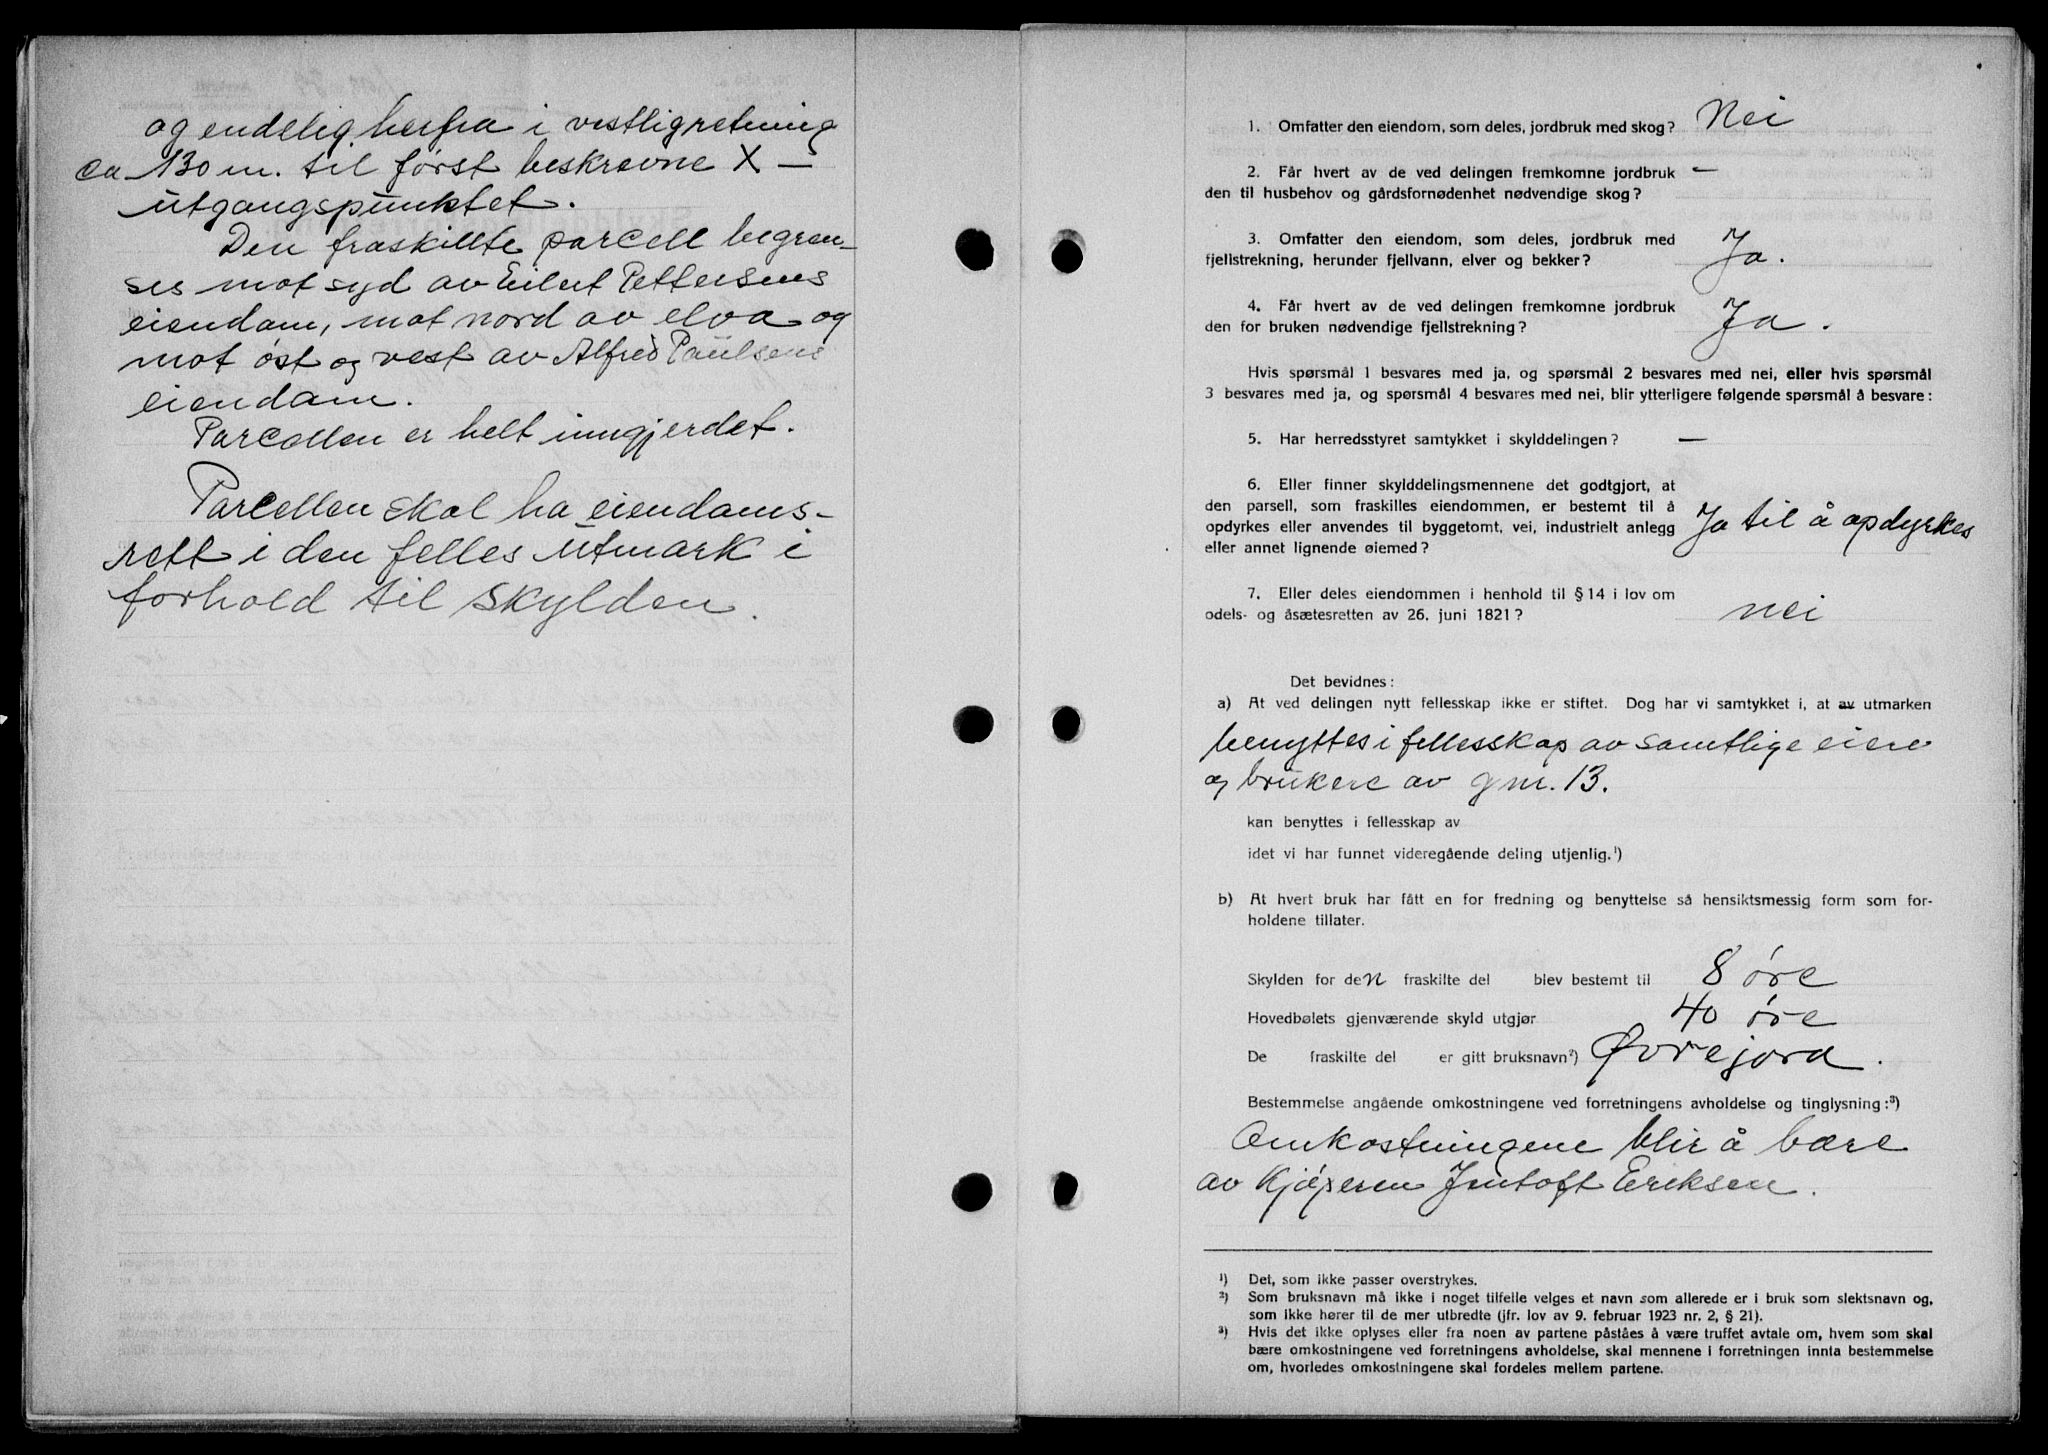 og endelig herfra i vestlig retning
ca 130 m. til først beskrevne X –
utgangspunktet.
Den fraskillte parcell begren-
ses mot syd av Eilert Pettersens
eiendom, mot nord av elva og
mot øst og vest av Alfred Paulsens
eiendom.
Parcellen er helt inngjerdet.
Parcellen skal ha eiendoms-
rett i den felles utmark i
forhold til skylden.
1. Omfatter den eiendom, som deles, jordbruk med skog? Nei
2. Får hvert av de ved delingen fremkomne jordbruk —
den til husbehov og gårdsfornødenhet nødvendige skog?
3. Omfatter den eiendom, som deles, jordbruk med
fjellstrekning, herunder fjellvann, elver og bekker? Ja.
4. Får hvert av de ved delingen fremkomne jordbruk
den for bruken nødvendige fjellstrekning? Ja.
Hvis spørsmål 1 besvares med ja, og spørsmål 2 besvares med nei, eller hvis spørsmål
3 besvares med ja, og spørsmål 4 besvares med nei, blir ytterligere følgende spørsmål å besvare:
5. Har herredsstyret samtykket i skylddelingen? —
6. Eller finner skylddelingsmennene det godtgjort, at
den parsell, som fraskilles eiendommen, er bestemt til å
opdyrkes eller anvendes til byggetomt, vei, industrielt anlegg Ja til å opdyrkes
eller annet lignende øiemed?
7. Eller deles eiendommen i henhold til § 14 i lov om
odels- og åsætesretten av 26. juni 1821? nei
Det bevidnes:
a) At ved delingen nytt fellesskap ikke er stiftet. Dog har vi samtykket i, at av utmarken
benyttes i fellesskap av samtlige eiere
og brukere av gnr. 13.
kan benyttes i fellesskap av
idet vi har funnet videregående deling utjenlig.¹)
b) At hvert bruk har fått en for fredning og benyttelse så hensiktsmessig form som for-
holdene tillater.
Skylden for den fraskilte del blev bestemt til 8 øre
Hovedbølets gjenværende skyld utgjør 40 øre
De fraskilte del er gitt bruksnavn²) Øvrejord.
Bestemmelse angående omkostningene ved forretningens avholdelse og tinglysning:³)
Omkostningene blir å bære
av kjøperen Jentoft Eriksen.
¹) Det, som ikke passer overstrykes.
²) Som bruksnavn må ikke i noget tilfelle velges et navn som allerede er i bruk som slektsnavn og,
som ikke hører til de mer utbredte (jfr. lov av 9. februar 1923 nr. 2, § 21).
³) Hvis det ikke oplyses eller fra noen av partene påståes å være truffet avtale om, hvem som skal
bære omkostningene ved forretningens avholdelse, skal mennene i forretningen innta bestemmelse
om, hvorledes omkostningene skal fordeles mellem partene.